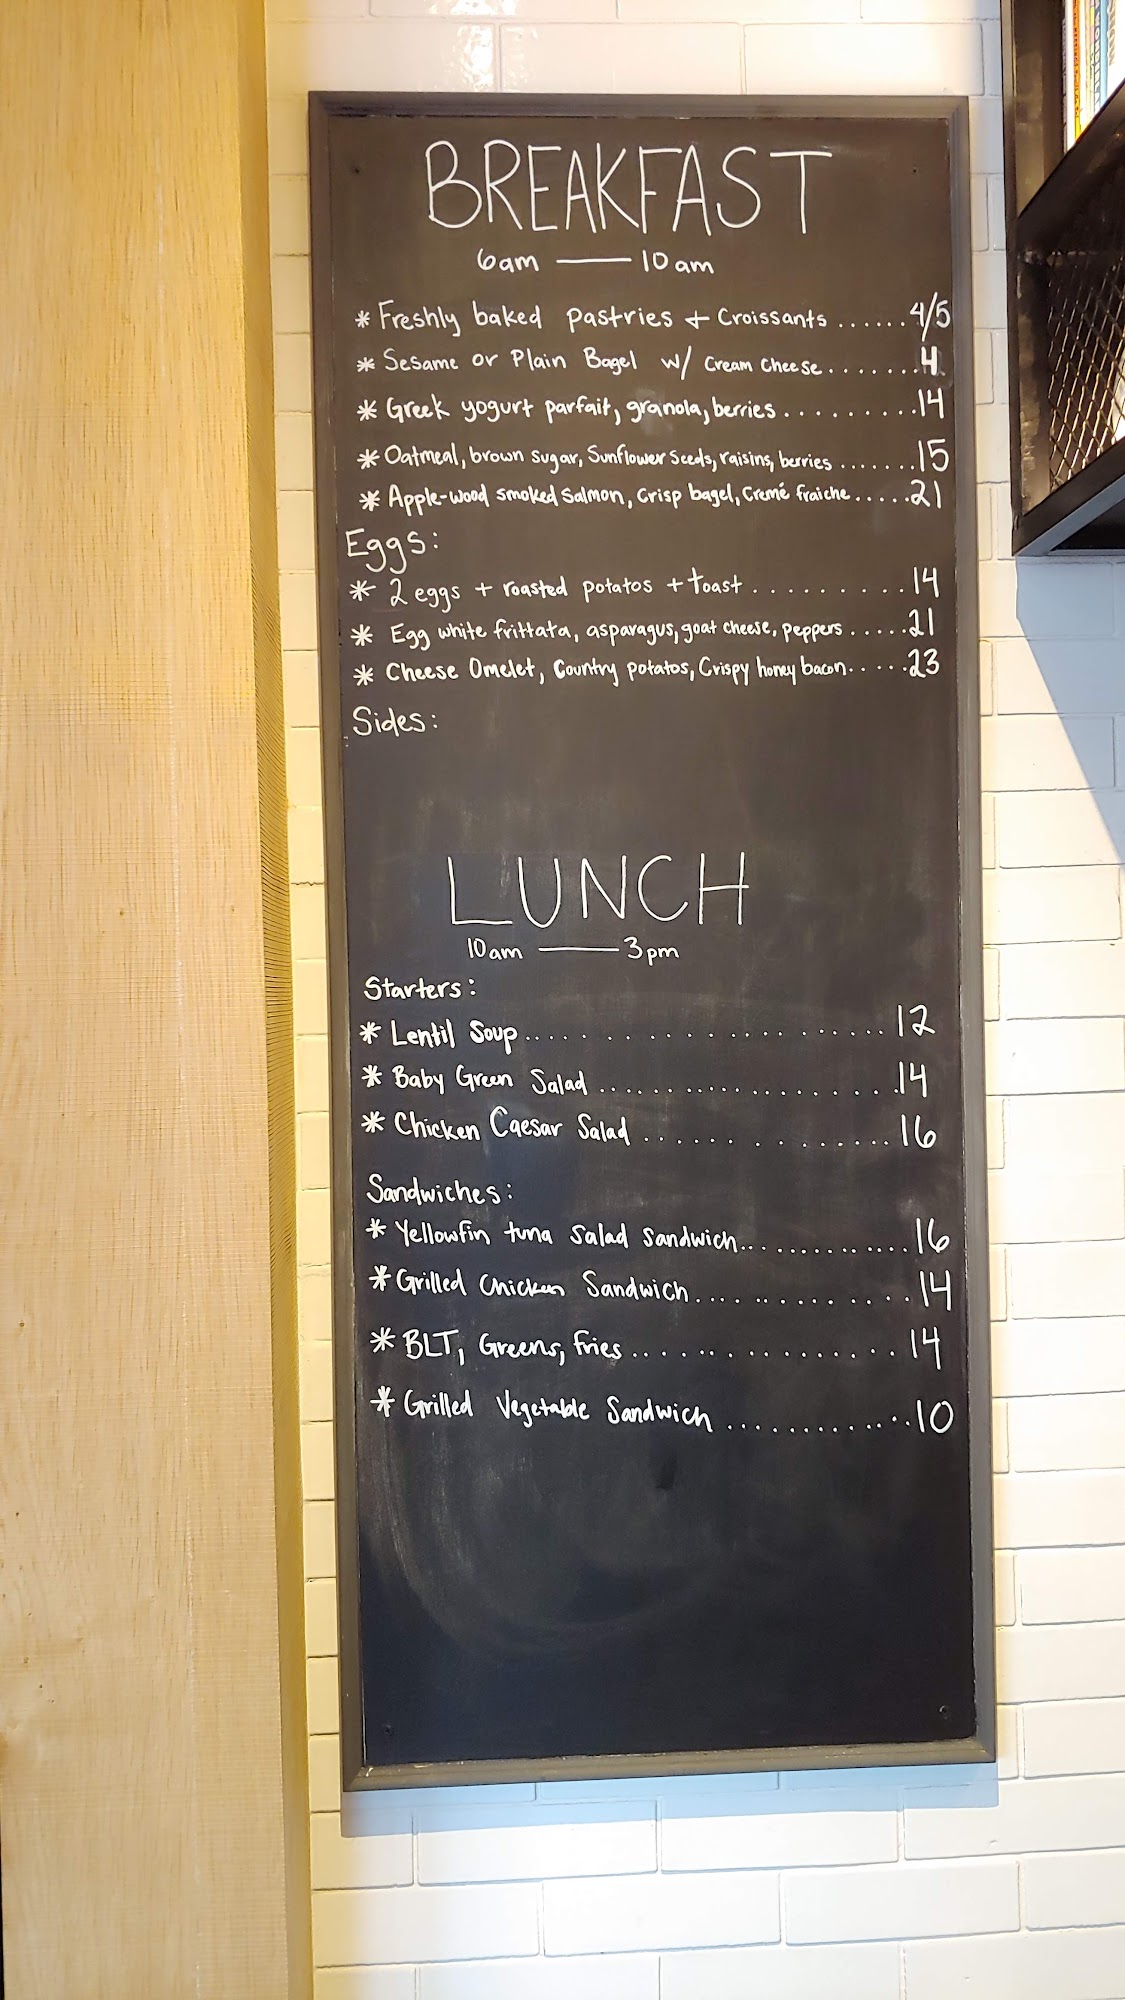 BREAKFAST
6am — 10am
* Freshly baked pastries + Croissants ......4/5
* Sesame or Plain Bagel w/ Cream Cheese.......4
* Greek yogurt parfait, granola, berries.........14
* Oatmeal, brown sugar, Sunflower Seeds, raisins, berries .......15
* Apple-wood smoked salmon, Crisp bagel, Cremé fraiche.....21
Eggs:
* 2 eggs + roasted potatos + toast..........14
* Egg white frittata, asparagus, goat cheese, peppers.....21
* Cheese Omelet, Country potatos, Crispy honey bacon.....23
Sides:
LUNCH
10am — 3pm
Starters:
* Lentil Soup.......................12
* Baby Green Salad...................14
* Chicken Caesar Salad...............16
Sandwiches:
* Yellowfin tuna Salad Sandwich.............16
* Grilled Chicken Sandwich.............14
* BLT, Greens, fries.................14
* Grilled Vegetable Sandwich.............10